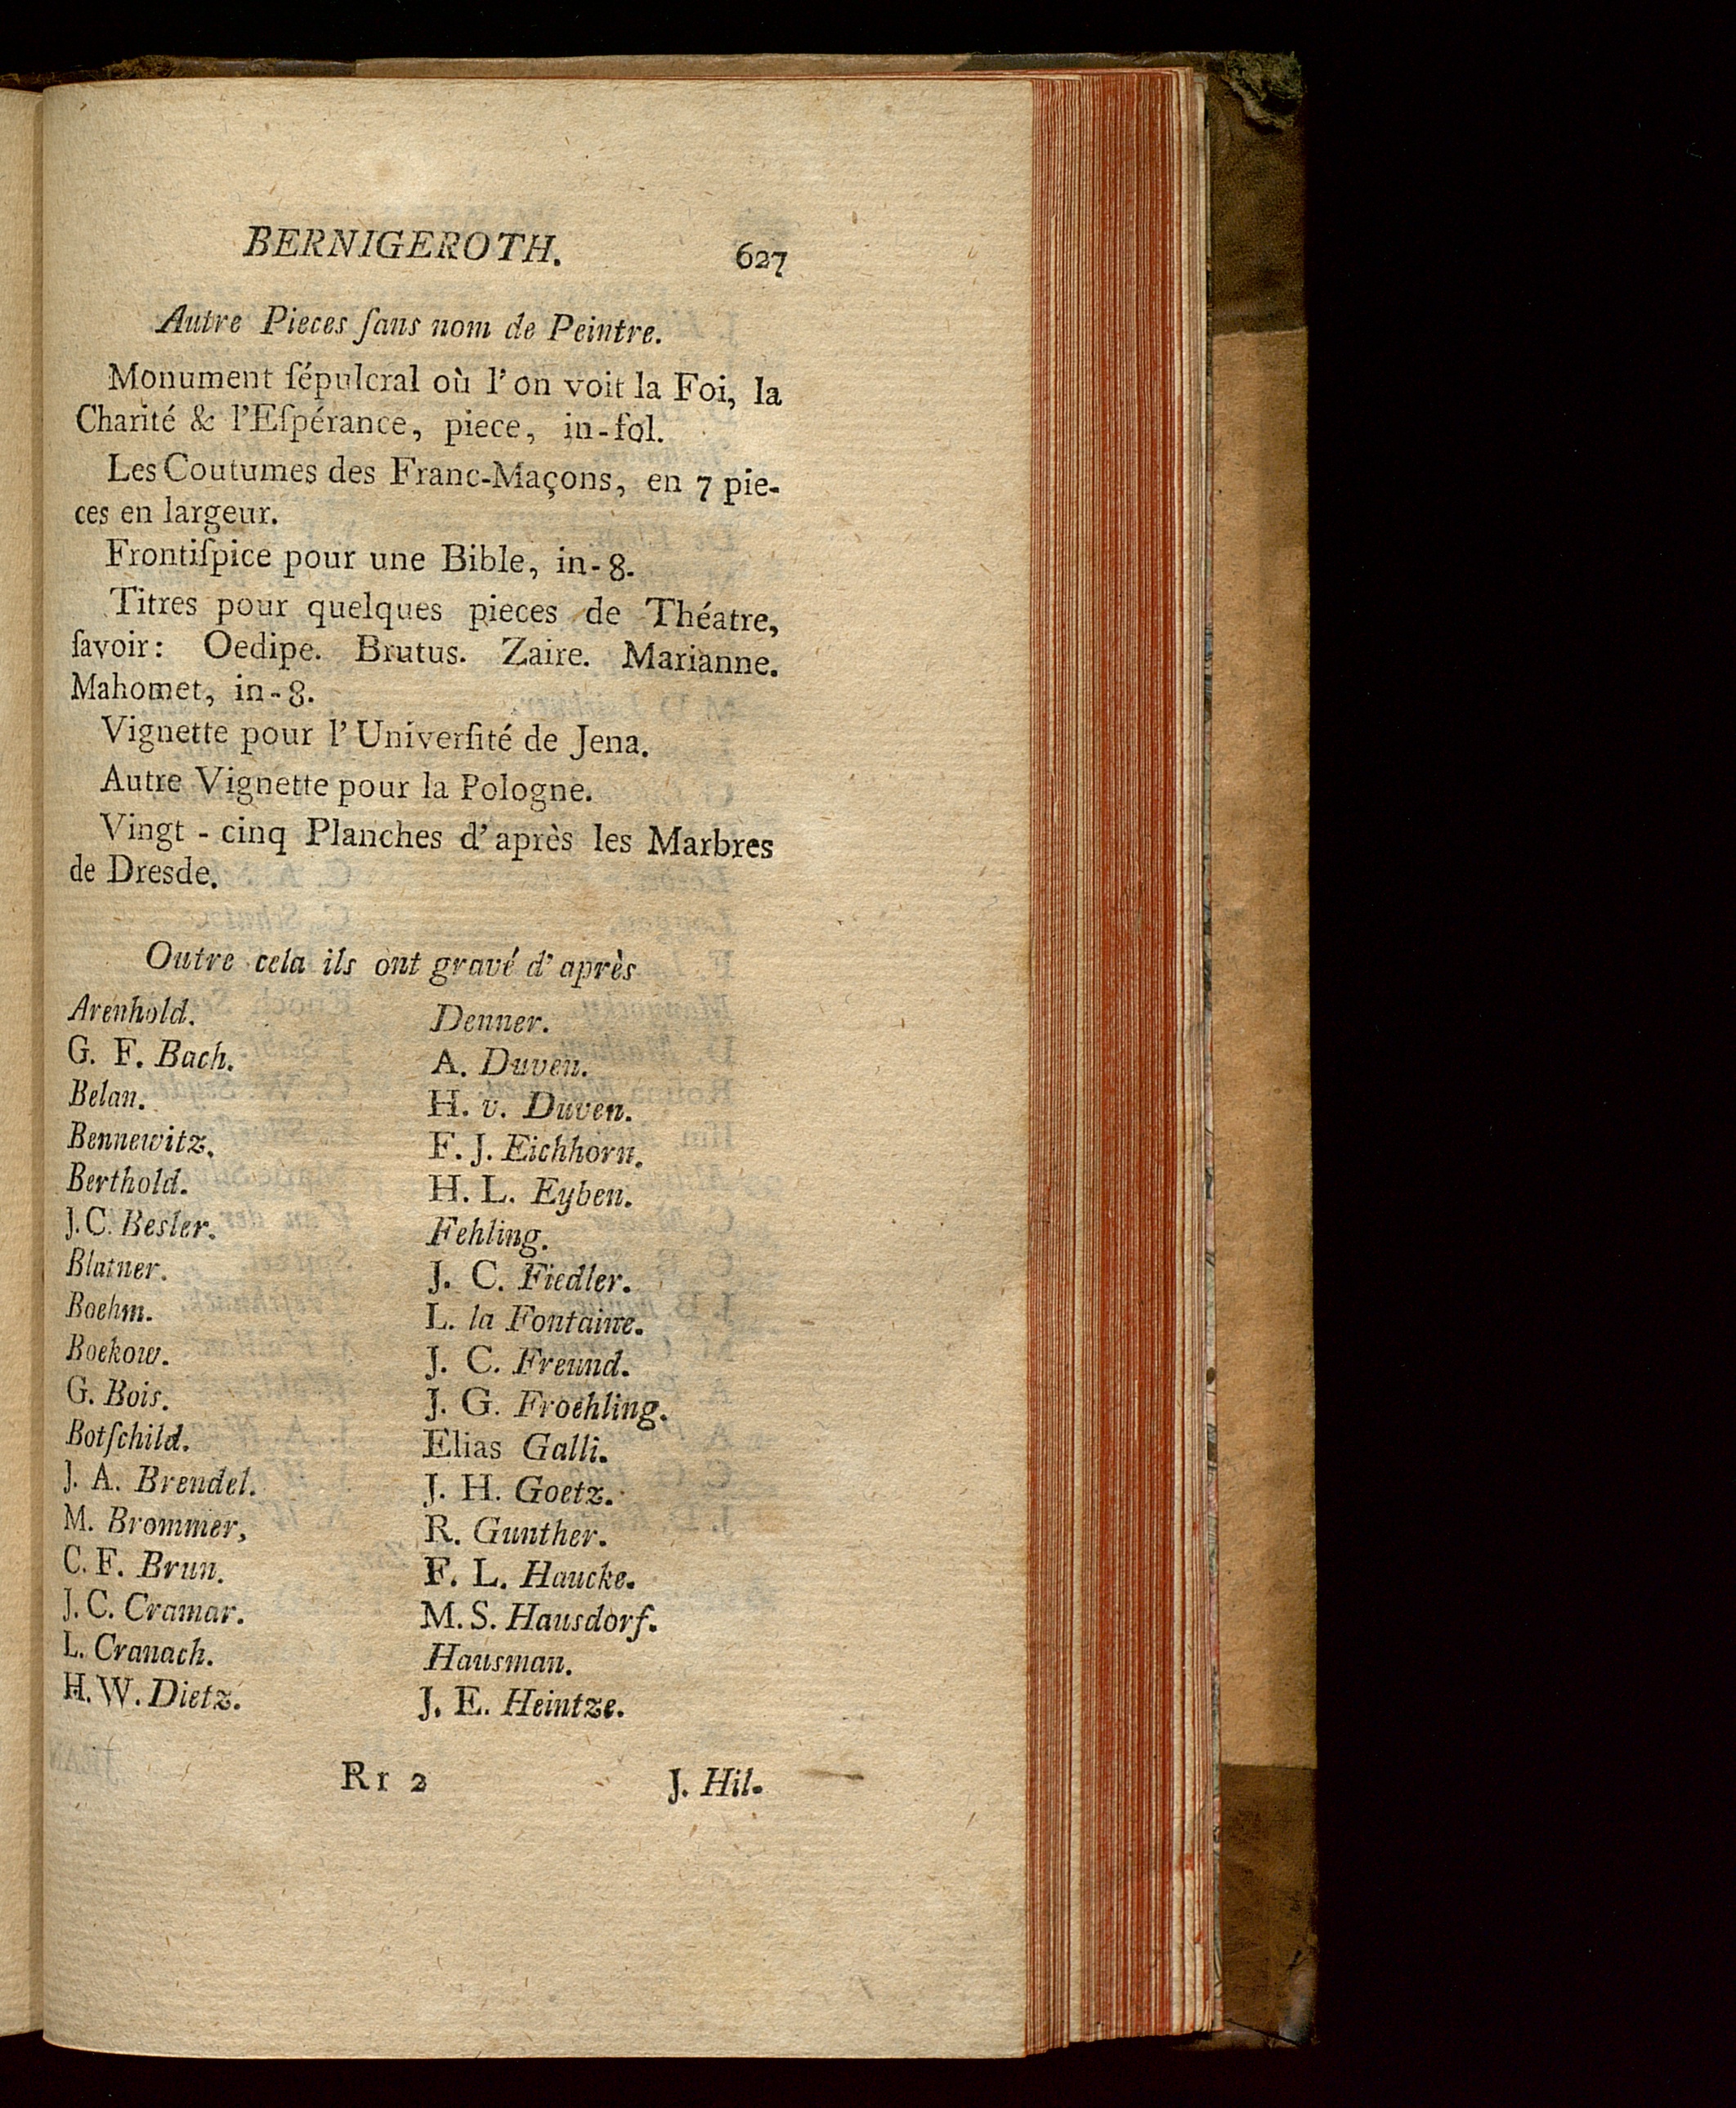 BERNIGEROTH. 627
Autre Pieces ſans nom de Peintre.
Monument ſépulcral où l'on voit la Foi, la
Charité & l'Eſpérance, piece, in-fol.
Les Coutumes des Franc-Maçons, en 7 pie-
ces en largeur.
Frontiſpice pour une Bible, in-8.
Titres pour quelques pieces de Théatre,
ſavoir: Oedipe. Brutus. Zaire. Marianne.
Mahomet, in-8.
Vignette pour l'Univerſité de Jena.
Autre Vignette pour la Pologne.
Vingt-cinq Planches d'après les Marbres
de Dresde.
Outre cela ils ont gravé d'après
Arenhold.
G. F. Bach.
Belan.
Bennewitz.
Berthold.
J. C. Besler.
Blatner.
Boehm.
Boekow.
G. Bois.
Botſchild.
J. A. Brendel.
M. Brommer,
C. F. Brun.
J. C. Cramar.
L. Cranach.
H. W. Dietz.
Denner.
A. Duven.
H. v. Duven.
F. J. Eichhorn.
H. L. Eyben.
Fehling.
J. C. Fiedler.
L. la Fontaine.
J. C. Freund.
J. G. Froehling.
Elias Galli.
J. H. Goetz.
R. Gunther.
F. L. Haucke.
M. S. Hausdorf.
Hausman.
J. E. Heintze.
Rr 2 J. Hil-